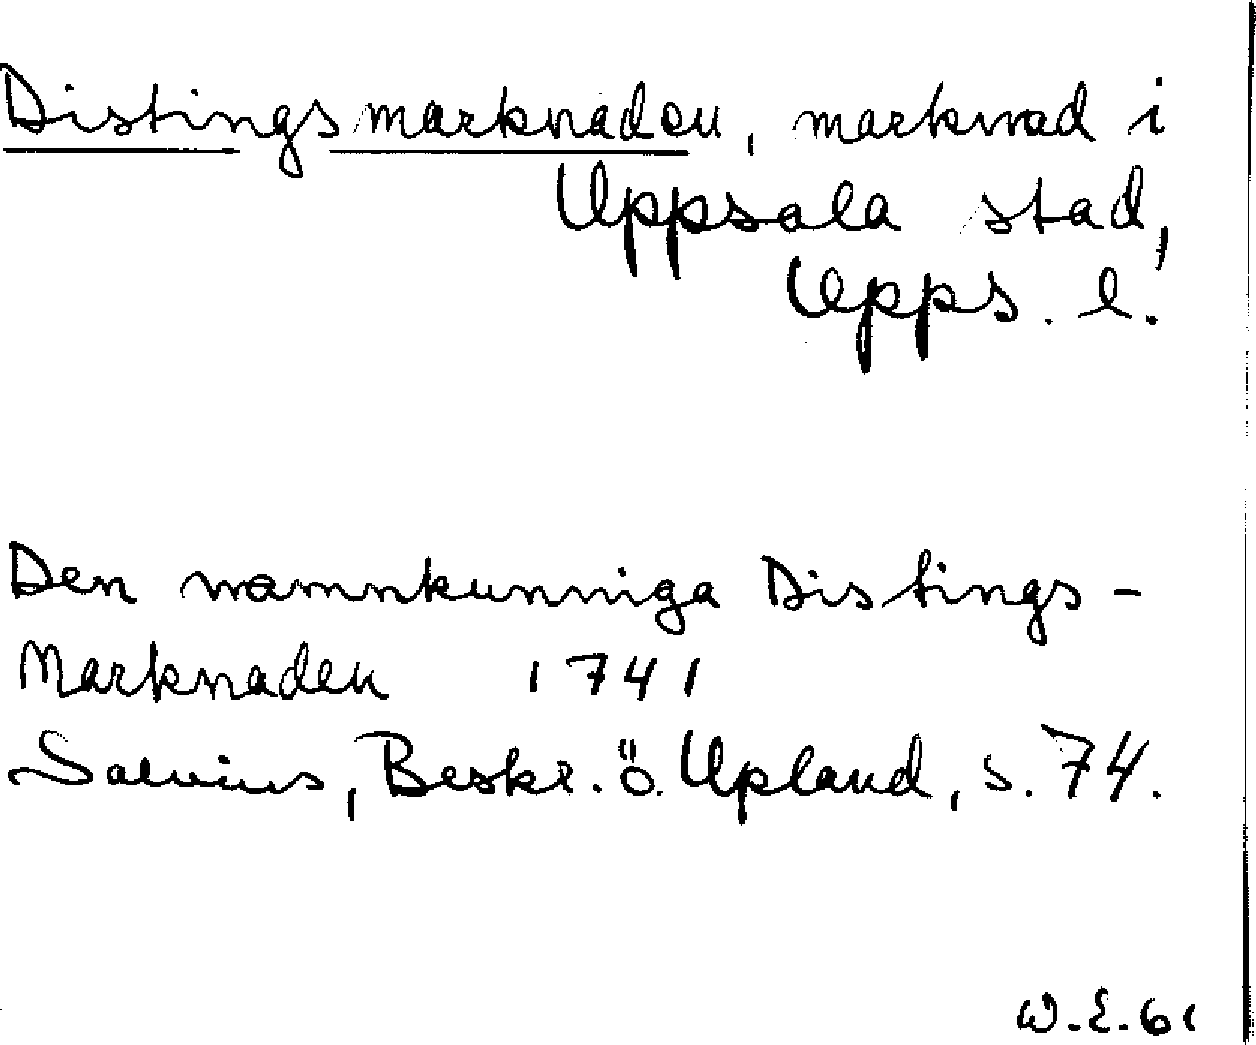 Distingsmarknaden, marknad i
Uppsala stad,
Upps. l.
Den namnkunniga Distings-
Marknaden 1741
Salvius, Beskr. ö. Upland, s. 74.
W.E.61